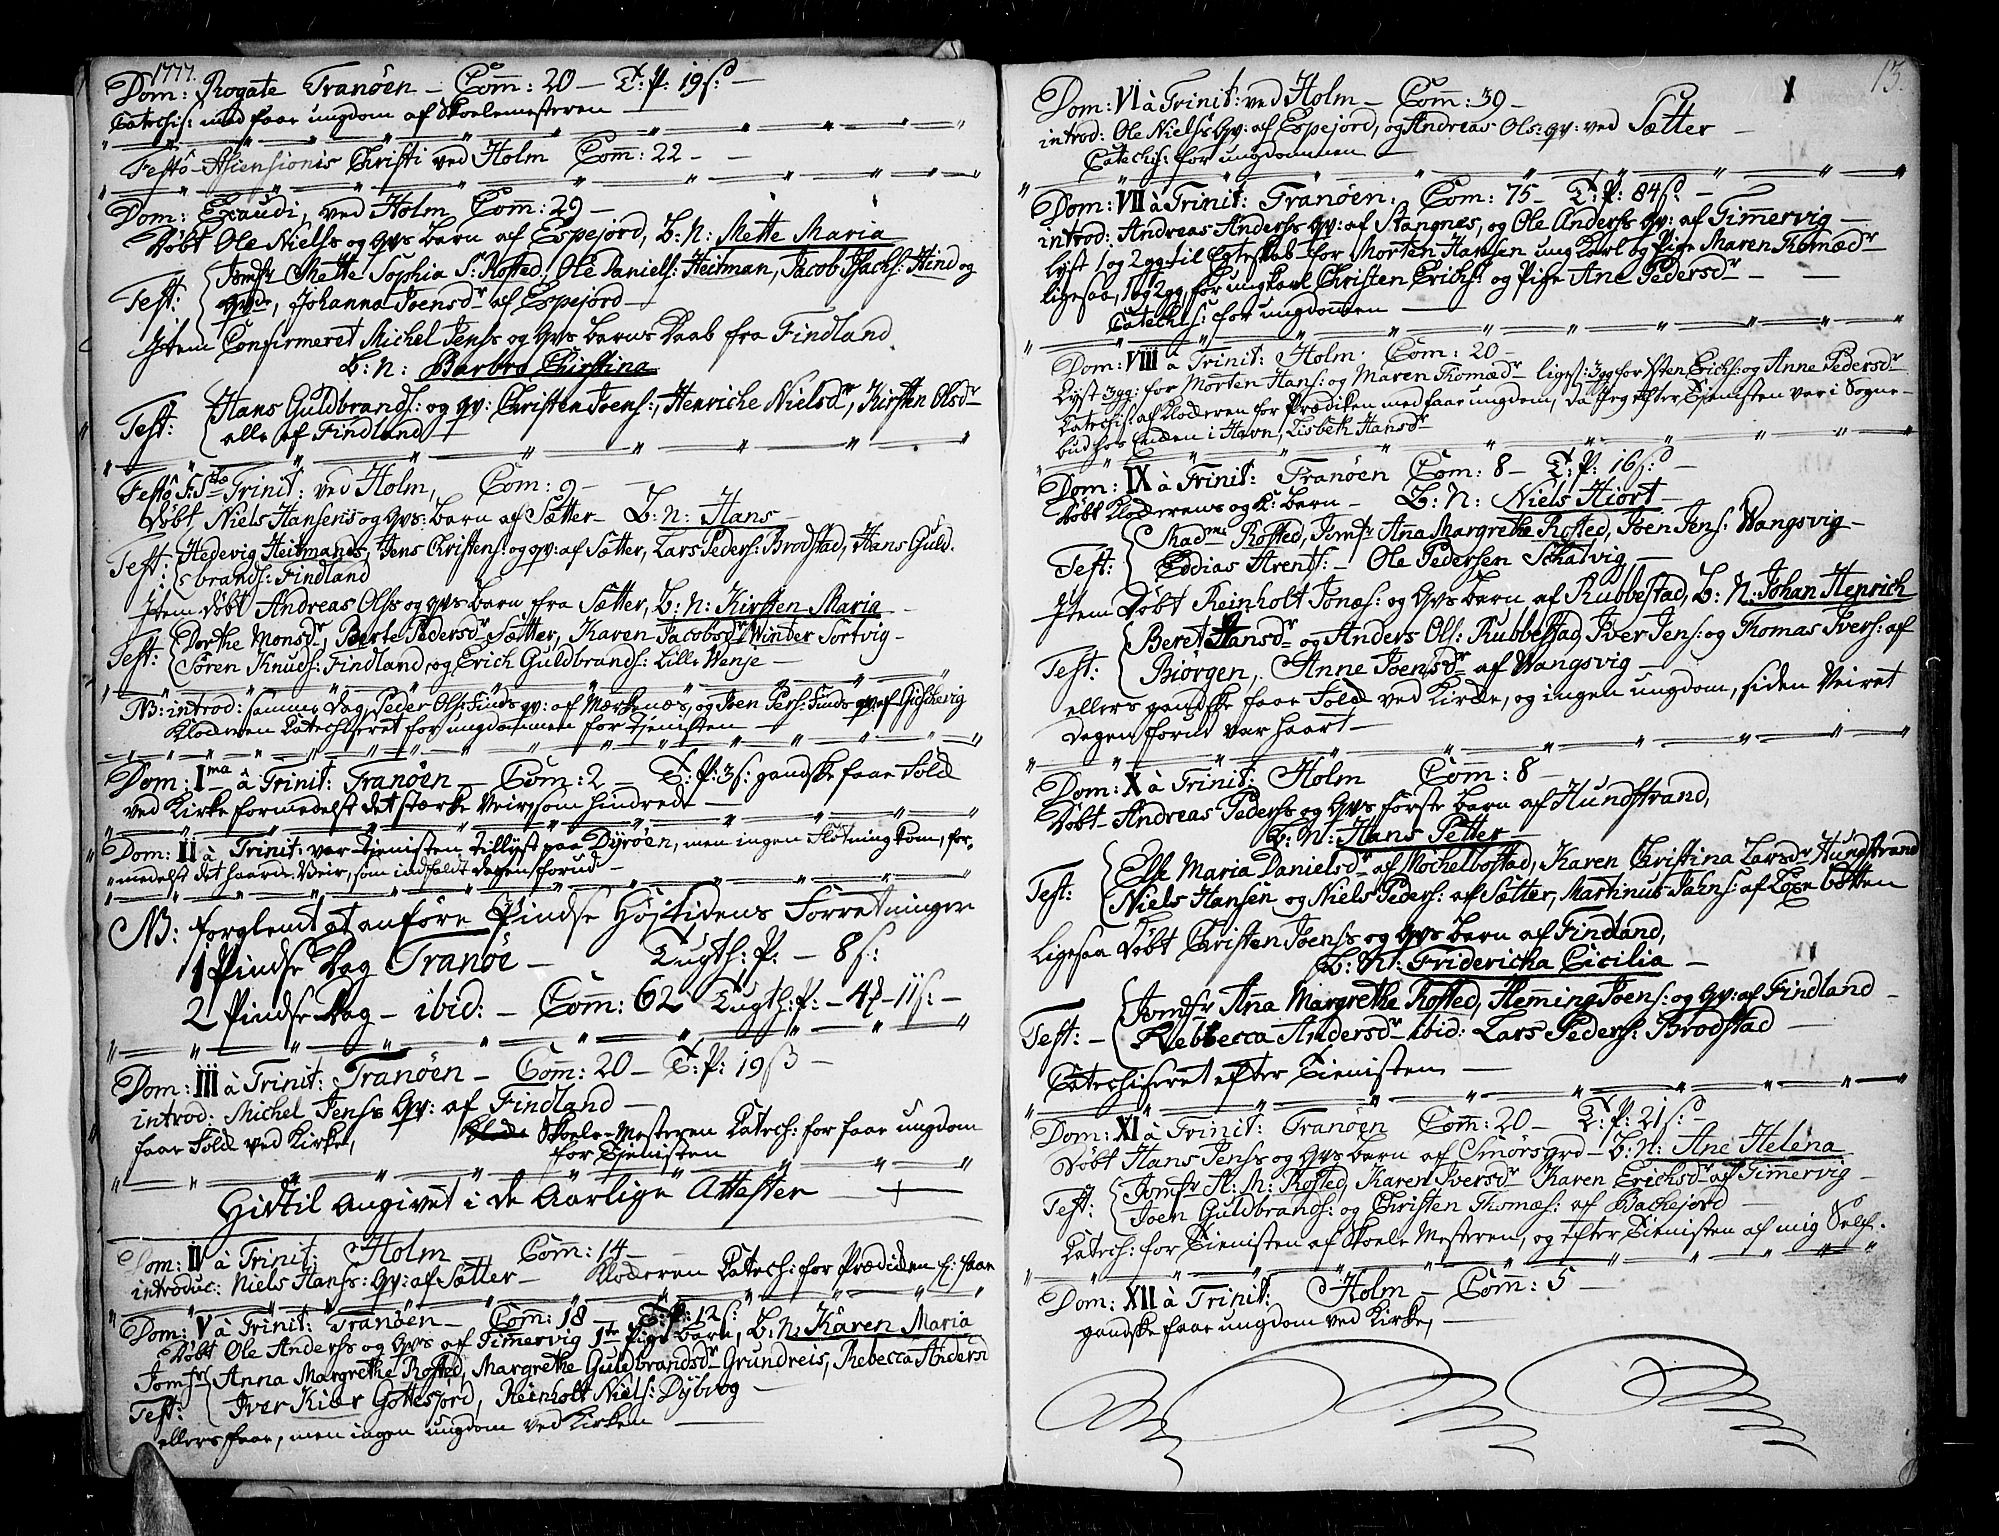 1777.
Dom: Rogate Tranöen – Com̄: 20 – T: P: 19 s: –
Catechis: med faae ungdom af Skoelemesteren –
Festô Ascensionis Christi ved Holm Com̄: 22 – –
Dom: Exaudi, ved Holm Com̄: 29 –
Döbt Ole Nielss og Qvs barn af Espejord, B: N: Mette Maria
Jomfr Mette Sophia S: Rosted, Ole Daniels: Heitman, Jacob Jachs: Hind og
Test: qvde, Johanna Joensdr af Espejord –
Item Confirmeret Michel Jenss og Qvs barns Daab fra Findland
B: N: Barbro Christina
Hans Guldbrands: og qv: Christen Joens:, Henriche Nielsdr, Kirsten Olsdr
Test: alle af Findland
Festô S: Stæ Trinit: ved Holm, Com: 9 –
Döbt Niels Hansens og Qvs: barn af Sætter – B: N: Hans –
Test: Hedevig Heitmands, Jens Christens: og qv: af Sætter, Lars Peders: Brodstad, Hans Guld-
brands: Findland
Item Döbt Andreas Olss og Qvs barn fra Sætter, B: N: Kirsten Maria
Dorthe Monsdr, Berte Pedersdr Sætter, Karen Jacobsdr Winder Sortvig –
Test: Sören Knuds: Findland, og Erich Guldbrands: Lille Wenje –
NB: introd: samme Dag, Peder Olss Finds qv: af Mærkenæs, og Joen Pers: Finds qv: af
Klockeren Catechiseret for ungdommen for Tjenisten –
Dom: I ma â Trinit: Tranöen – Com: 2 – T: P: 3 s: gandske faae Folck
ved Kirke formedelst det stærke Veir, som hindrede –
Dom: II â Trinit: var Tjenisten tillyst paa Dyröen, men ingen Flötning kom, for-
medelst det haarde Veir, som indfaldt dagen forud –
NB: forglemt at anföre Pindse Höjtidens Forretninger
1 Pindse Dag Tranöe – Tugth: P: – 8 s:
2 Pindse Dag – ibid: – Com̄: 62 Tugth: P: – 4 – 11 s: –
Dom: III â Trinit: Tranöen – Com: 20 – T: P: 19 s –
introd: Michel Jenss Qv: af Findland –
faae Folck ved Kirke, Skoele-Mesteren Catech: for faae ungdom
for Tjenisten
Hidtil angivet i de Aarlige Attester –
Dom: IV â Trinit: Holm – Com̄: 14 –
introduc: Niels Hanss: Qv: af Sætter – Klockeren Catech: for Prædiken f: faae
Dom: V â Trinit: Tranöen – Com: 18 – T: P: 12 s:
Döbt Ole Anderss og Qvs af Tim̄ervig 1te Pige barn, B: N: Karen Maria
Jomfr Anna Margrethe Rosted, Margrethe Guldbrandsdr Grundreis, Rebecca Andersd
Test: Iver Kiær Gottesjord, Reinholt Niels: Dybvog –
ellers faae, men ingen ungdom ved Kirken –
13.
Dom: VI â Trinit: ved Holm – Com̄: 39 –
introd: Ole Nielss Qv: af Espejord, og Andreas Ols: qv: ved Sætter –
Catechis: for ungdommen –
Dom: VII â Trinit: Tranöen, Com: 75 – T: P: 84 s –
introd: Andreas Anderss Qv: af Stangnes, og Ole Anderss Qv: af Tim̄ervig –
Lyst 1 og 2 gg til Egteskab for Morten Hansen ung Karl og Pige Maren Thomædr
ligesaa, 1 og 2 gg, for ungkarl Christen Erichs: og Pige Ane Pedersdr –
Catechis: for ungdom̄en –
Dom: VIII â Trinit: Holm. Com: 20 –
Lyst 3 gg: for Morten Hans: og Maren Thomædr ligesaa: 3 gg for Xsten Erichs: og Anne Pedersdr
Catechis: af Klockeren for Prædiken med faae ungdom, da Jeg efter Tjenisten var i Sogne-
bud hos Enken i Havn, Lisbeth Hansdr
Dom: IX â Trinit: Tranöen Com: 8 – T: P: 16 s: –
Döbt Klockerens og K: barn – B: N: Niels Hiort –
Madme Rosted, Jomfr Ana Margrethe Rosted, Joen Jens: Wangsvig –
Test: Eddias Arents: – Ole Pedersen Schatvig
Item Döbt Reinholt Jonæs: og Qvs barn af Rubbestad, B: N: Johan Henrich
Beret Hansdr og Anders Ols: Rubbestad, Iver Jens: og Thomas Ivers: af
Test: Biörgen, Anne Joensdr af Wangsvig –
ellers gandske faae Folck ved Kirke, og ingen ungdom, siden Veiret
dagen forud var haart –
Dom: X â Trinit: Holm Com̄: 8 –
Döbt Andreas Pederss og Qvs förste barn af Hundstrand,
B: N: Hans Petter –
Else Maria Danielsdr af Möchelbostad, Karen Christina Larsdr Hundstrand
Test: Niels Hansen og Niels Peders: af Sætter, Martinus Jahns: af Loxebotten
Ligesaa Döbt Christen Joenss og Qvs barn af Findland,
B: N: Fridericha Cicilia –
Jomfr Ana Margrethe Rosted, Flemming Joens: og Qv: af Findland –
Test: – Rebbecca Andersdr ibid: Lars Peders: Brodstad –
Catechiseret efter Tienisten –
Dom: XI â Trinit: Tranöen Com̄: 20 – T: P: 21 s: –
Döbt Hans Jenss og Qvs barn af Smörsgrd – B: N: Ane Helena
Jomfr A: M: Rosted, Karen Iversdr Karen Erichsdr af Tim̄ervig –
Test: Joen Guldbrands: og Christen Thomæs: af Bachejord –
Catech: for Tienisten af Skoele Mesteren, og efter Tienisten af mig Self.
Dom: XII â Trinit: Holm – Com̄: 5 –
gandske faae ungdom ved Kirke, –